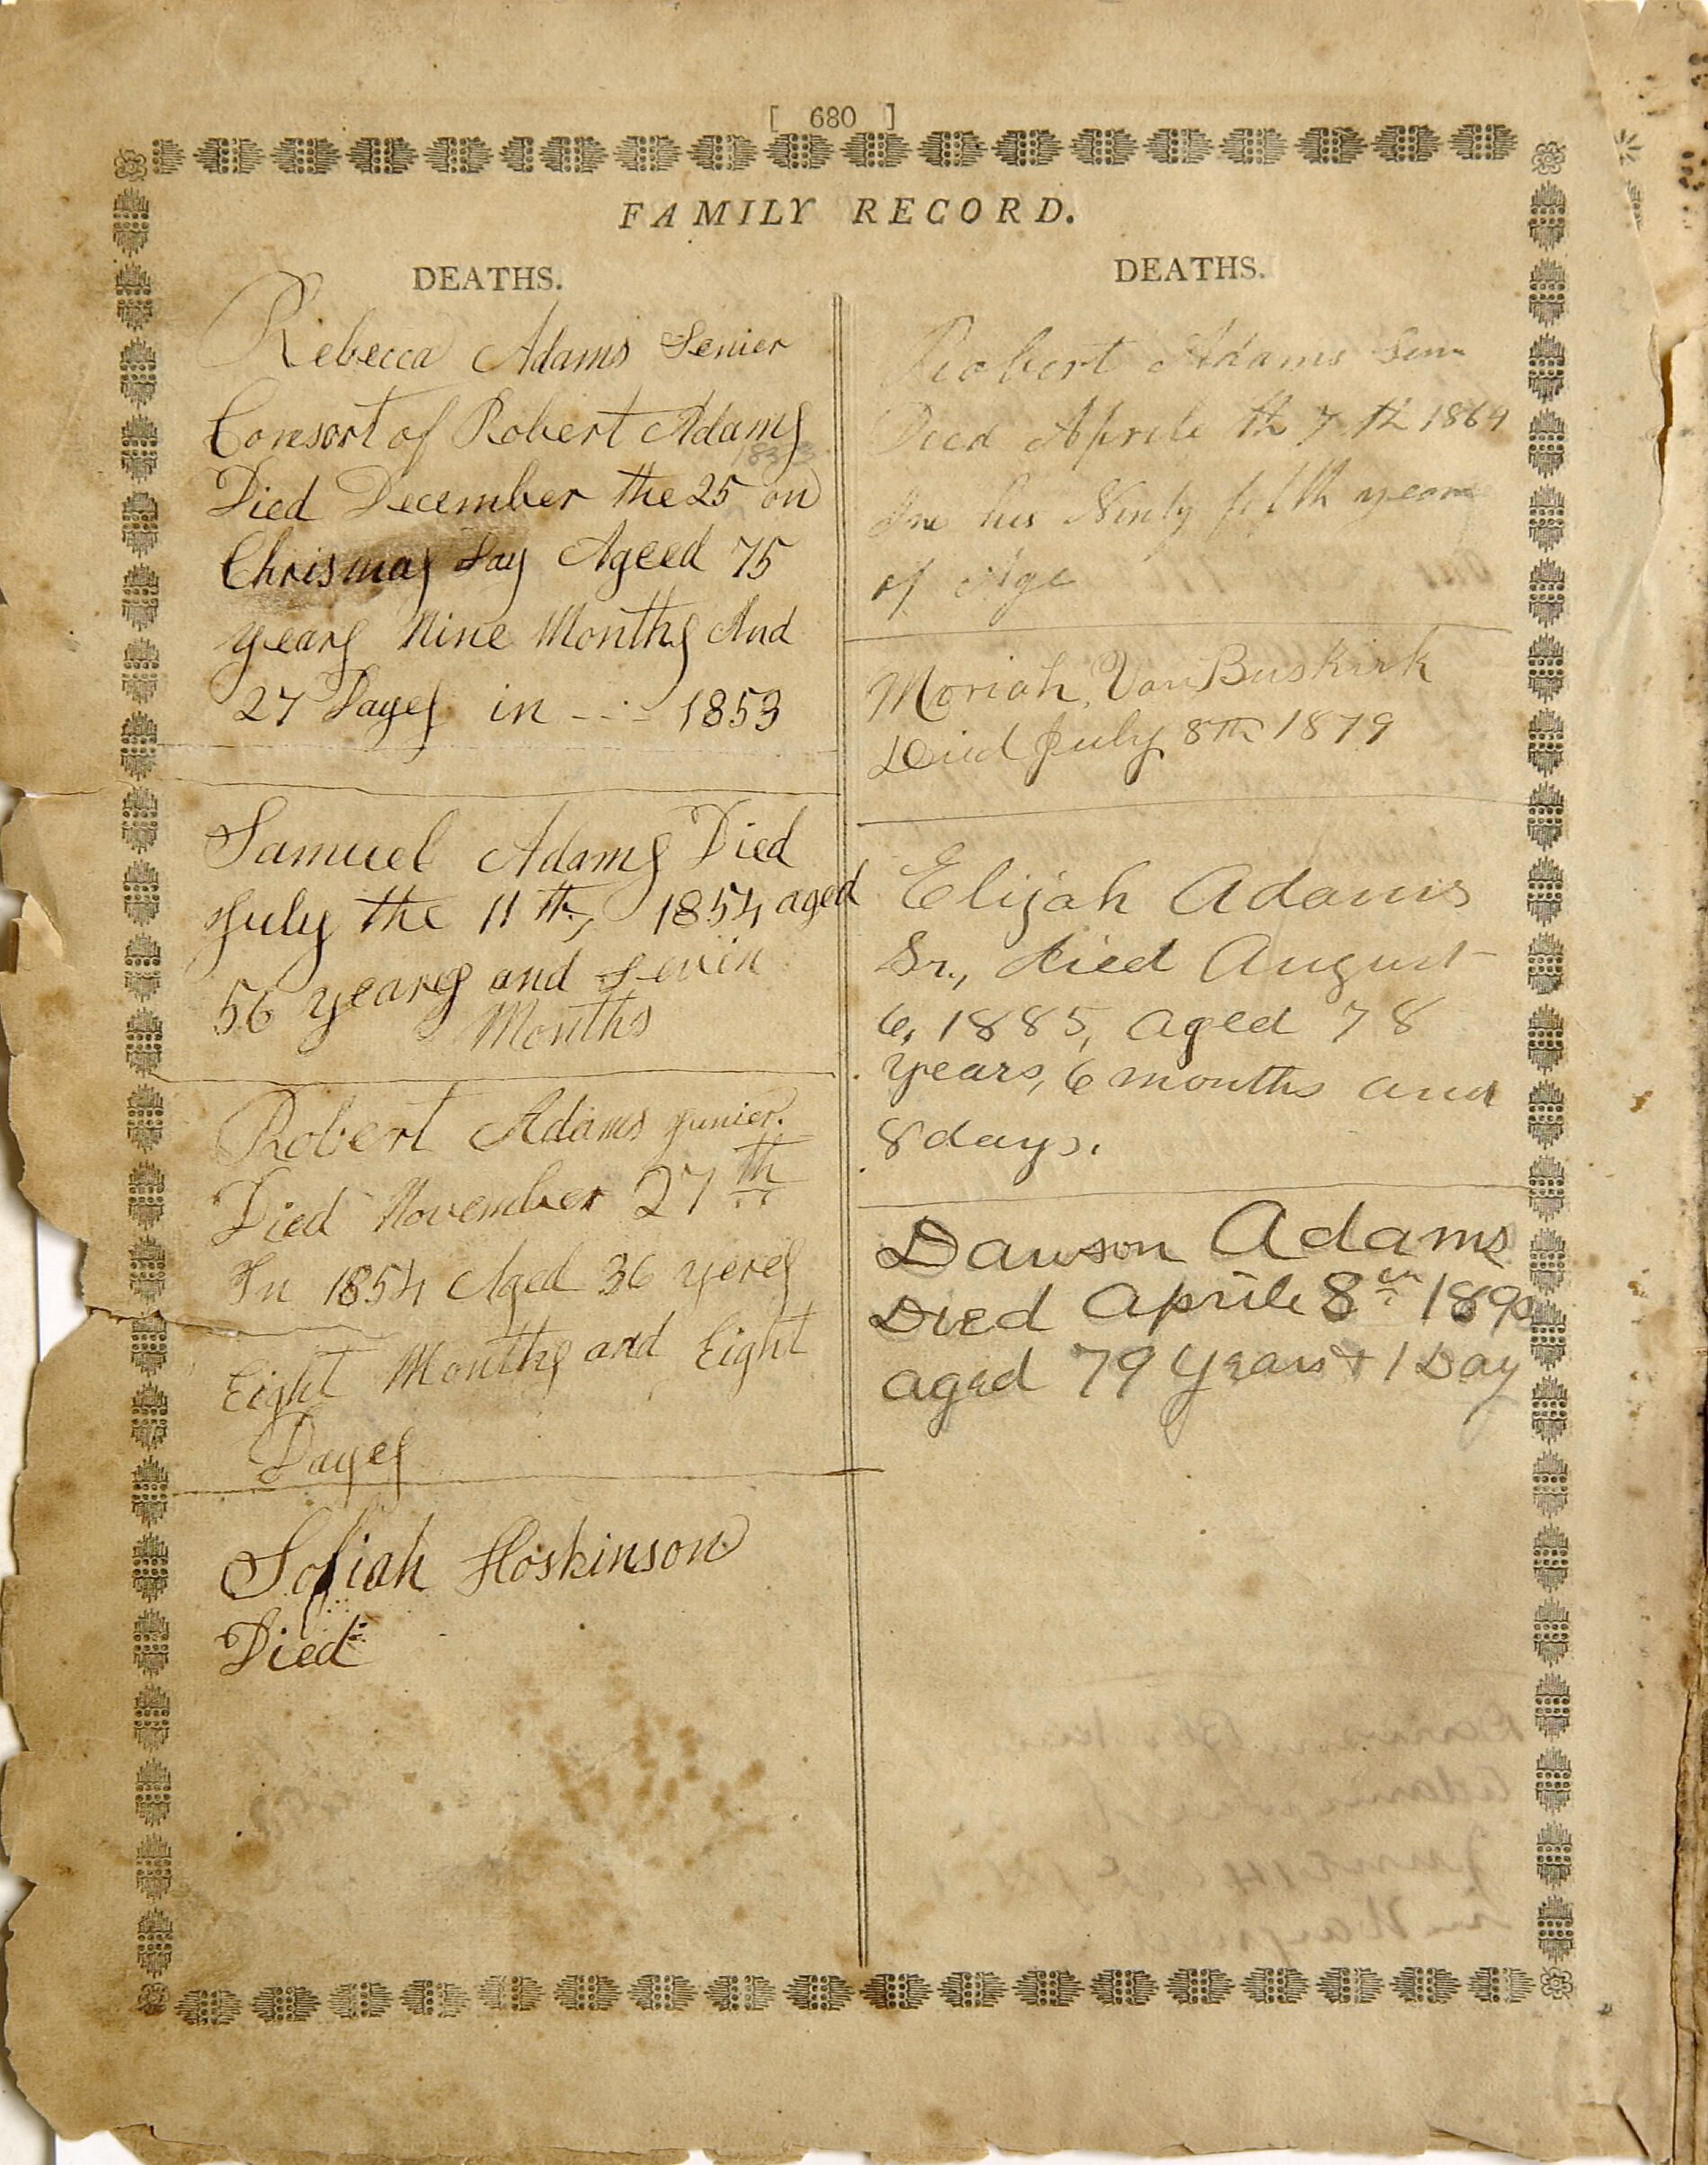 [ 680 ]
FAMILY RECORD.
DEATHS.
Rebecca Adams Senier
Consort of Robert Adams
1853
Died December the 25 on
Chrismas Day Ageed 75
years Nine Months And
27 Dayes in - - - 1853
Samuel Adams Died
July the 11 th, 1854 aged
56 years and Sevin
Months
Robert Adams junier.
Died November 27 th
In 1854 Aged 36 yeres
Eight Months and Eight
Dayes
Sofiah Hoskinson
Died
DEATHS.
Robert Adams Senr
Died Aprile th 7 th 1864
In his Ninty fifth year
of Age
Moriah Van Buskirk
Died July 8th 1879
Elijah Adams
Sr., died August
6, 1885, aged 78
years, 6 months and
8 days.
Dawson Adams
Died Aprile 8th 1890
aged 79 Years + 1 Day